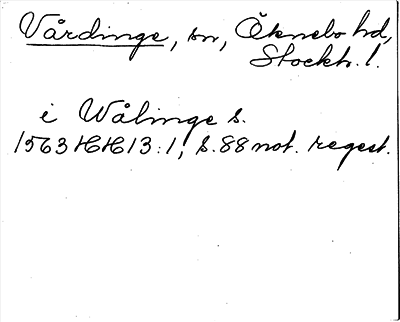 Vårdinge, sn, Öknebo hd,
Stockh. l.
i Wålinge s.
1563 HH 13:1, s. 88 not. regest.